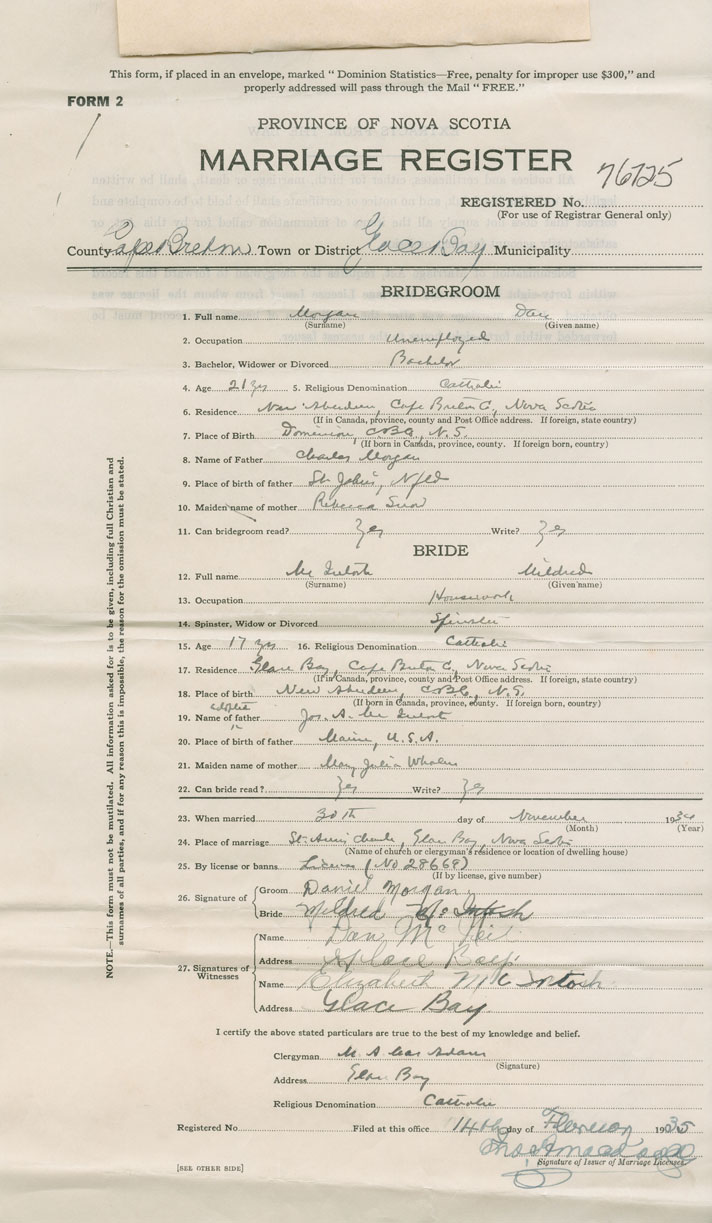 This form, if placed in an envelope, marked “ Dominion Statistics—Free, penalty for improper use $300,” and
properly addressed will pass through the Mail “ FREE.”
FORM 2
PROVINCE OF NOVA SCOTIA
MARRIAGE REGISTER
REGISTERED No. 76725
(For use of Registrar General only)
County Cape Breton Town or District Glace Bay Municipality
BRIDEGROOM
1. Full name Morgan Dan
(Surname) (Given name)
2. Occupation Unemployed
3. Bachelor, Widower or Divorced Bachelor
4. Age 21 yrs 5. Religious Denomination Catholic
6. Residence New Aberdeen, Cape Breton C, Nova Scotia
(If in Canada, province, county and Post Office address. If foreign, state country)
7. Place of Birth Dominion, CBC, N.S.
(If born in Canada, province, county. If foreign born, country)
8. Name of Father Charles Morgan
9. Place of birth of father St Johns, Nfld
10. Maiden name of mother Rebecca Snow
11. Can bridegroom read? Yes Write? Yes
BRIDE
12. Full name McIntosh Mildred
(Surname) (Given name)
13. Occupation Housework
14. Spinster, Widow or Divorced Spinster
15. Age 17 yrs 16. Religious Denomination Catholic
17. Residence Glace Bay, Cape Breton C, Nova Scotia
(If in Canada, province, county and Post Office address. If foreign, state country)
18. Place of birth New Aberdeen, CBC, N.S.
(If born in Canada, province, county. If foreign born, country)
adopted
19. Name of father Jos. A. McIntosh
20. Place of birth of father Maine, U.S.A.
21. Maiden name of mother Mary Julia Whalen
22. Can bride read? Yes Write? Yes
23. When married 30th day of November 1934
(Month) (Year)
24. Place of marriage St. Anns Church, Glace Bay, Nova Scotia
(Name of church or clergyman's residence or location of dwelling house)
25. By license or banns License (No 28668)
(If by license, give number)
26. Signature of Groom Daniel Morgan
Bride Mildred McIntosh
27. Signatures of Witnesses
Name Dan McNeil
Address Glace Bay
Name Elizabeth McIntosh
Address Glace Bay
I certify the above stated particulars are true to the best of my knowledge and belief.
Clergyman M. A. MacAdam
(Signature)
Address Glace Bay
Religious Denomination Catholic
Registered No. Filed at this office 14th day of 1935
Signature of Issuer of Marriage Licenses
[SEE OTHER SIDE]
NOTE.—This form must not be mutilated. All information asked for is to be given, including full Christian and
surnames of all parties, and if for any reason this is impossible, the reason for the omission must be stated.